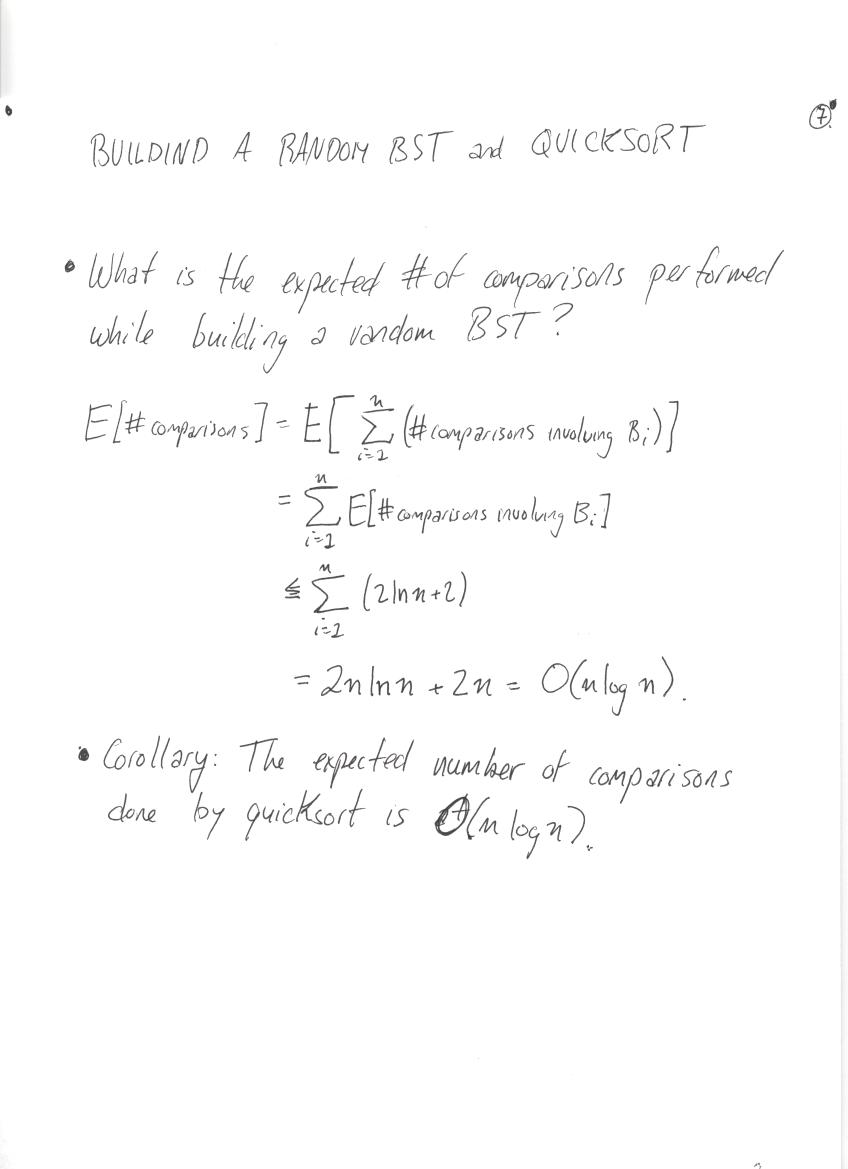 7
BUILDIND A RANDOM BST and QUICKSORT
• What is the expected # of comparisons performed
while building a random BST?
E[# comparisons] = E[ ∑_{i=1}^{n} (# comparisons involving B_i)]
= ∑_{i=1}^{n} E[# comparisons involving B_i]
≤ ∑_{i=1}^{n} (2 ln n + 2)
= 2n ln n + 2n = O(n log n).
• Corollary: The expected number of comparisons
done by quicksort is O(n log n).